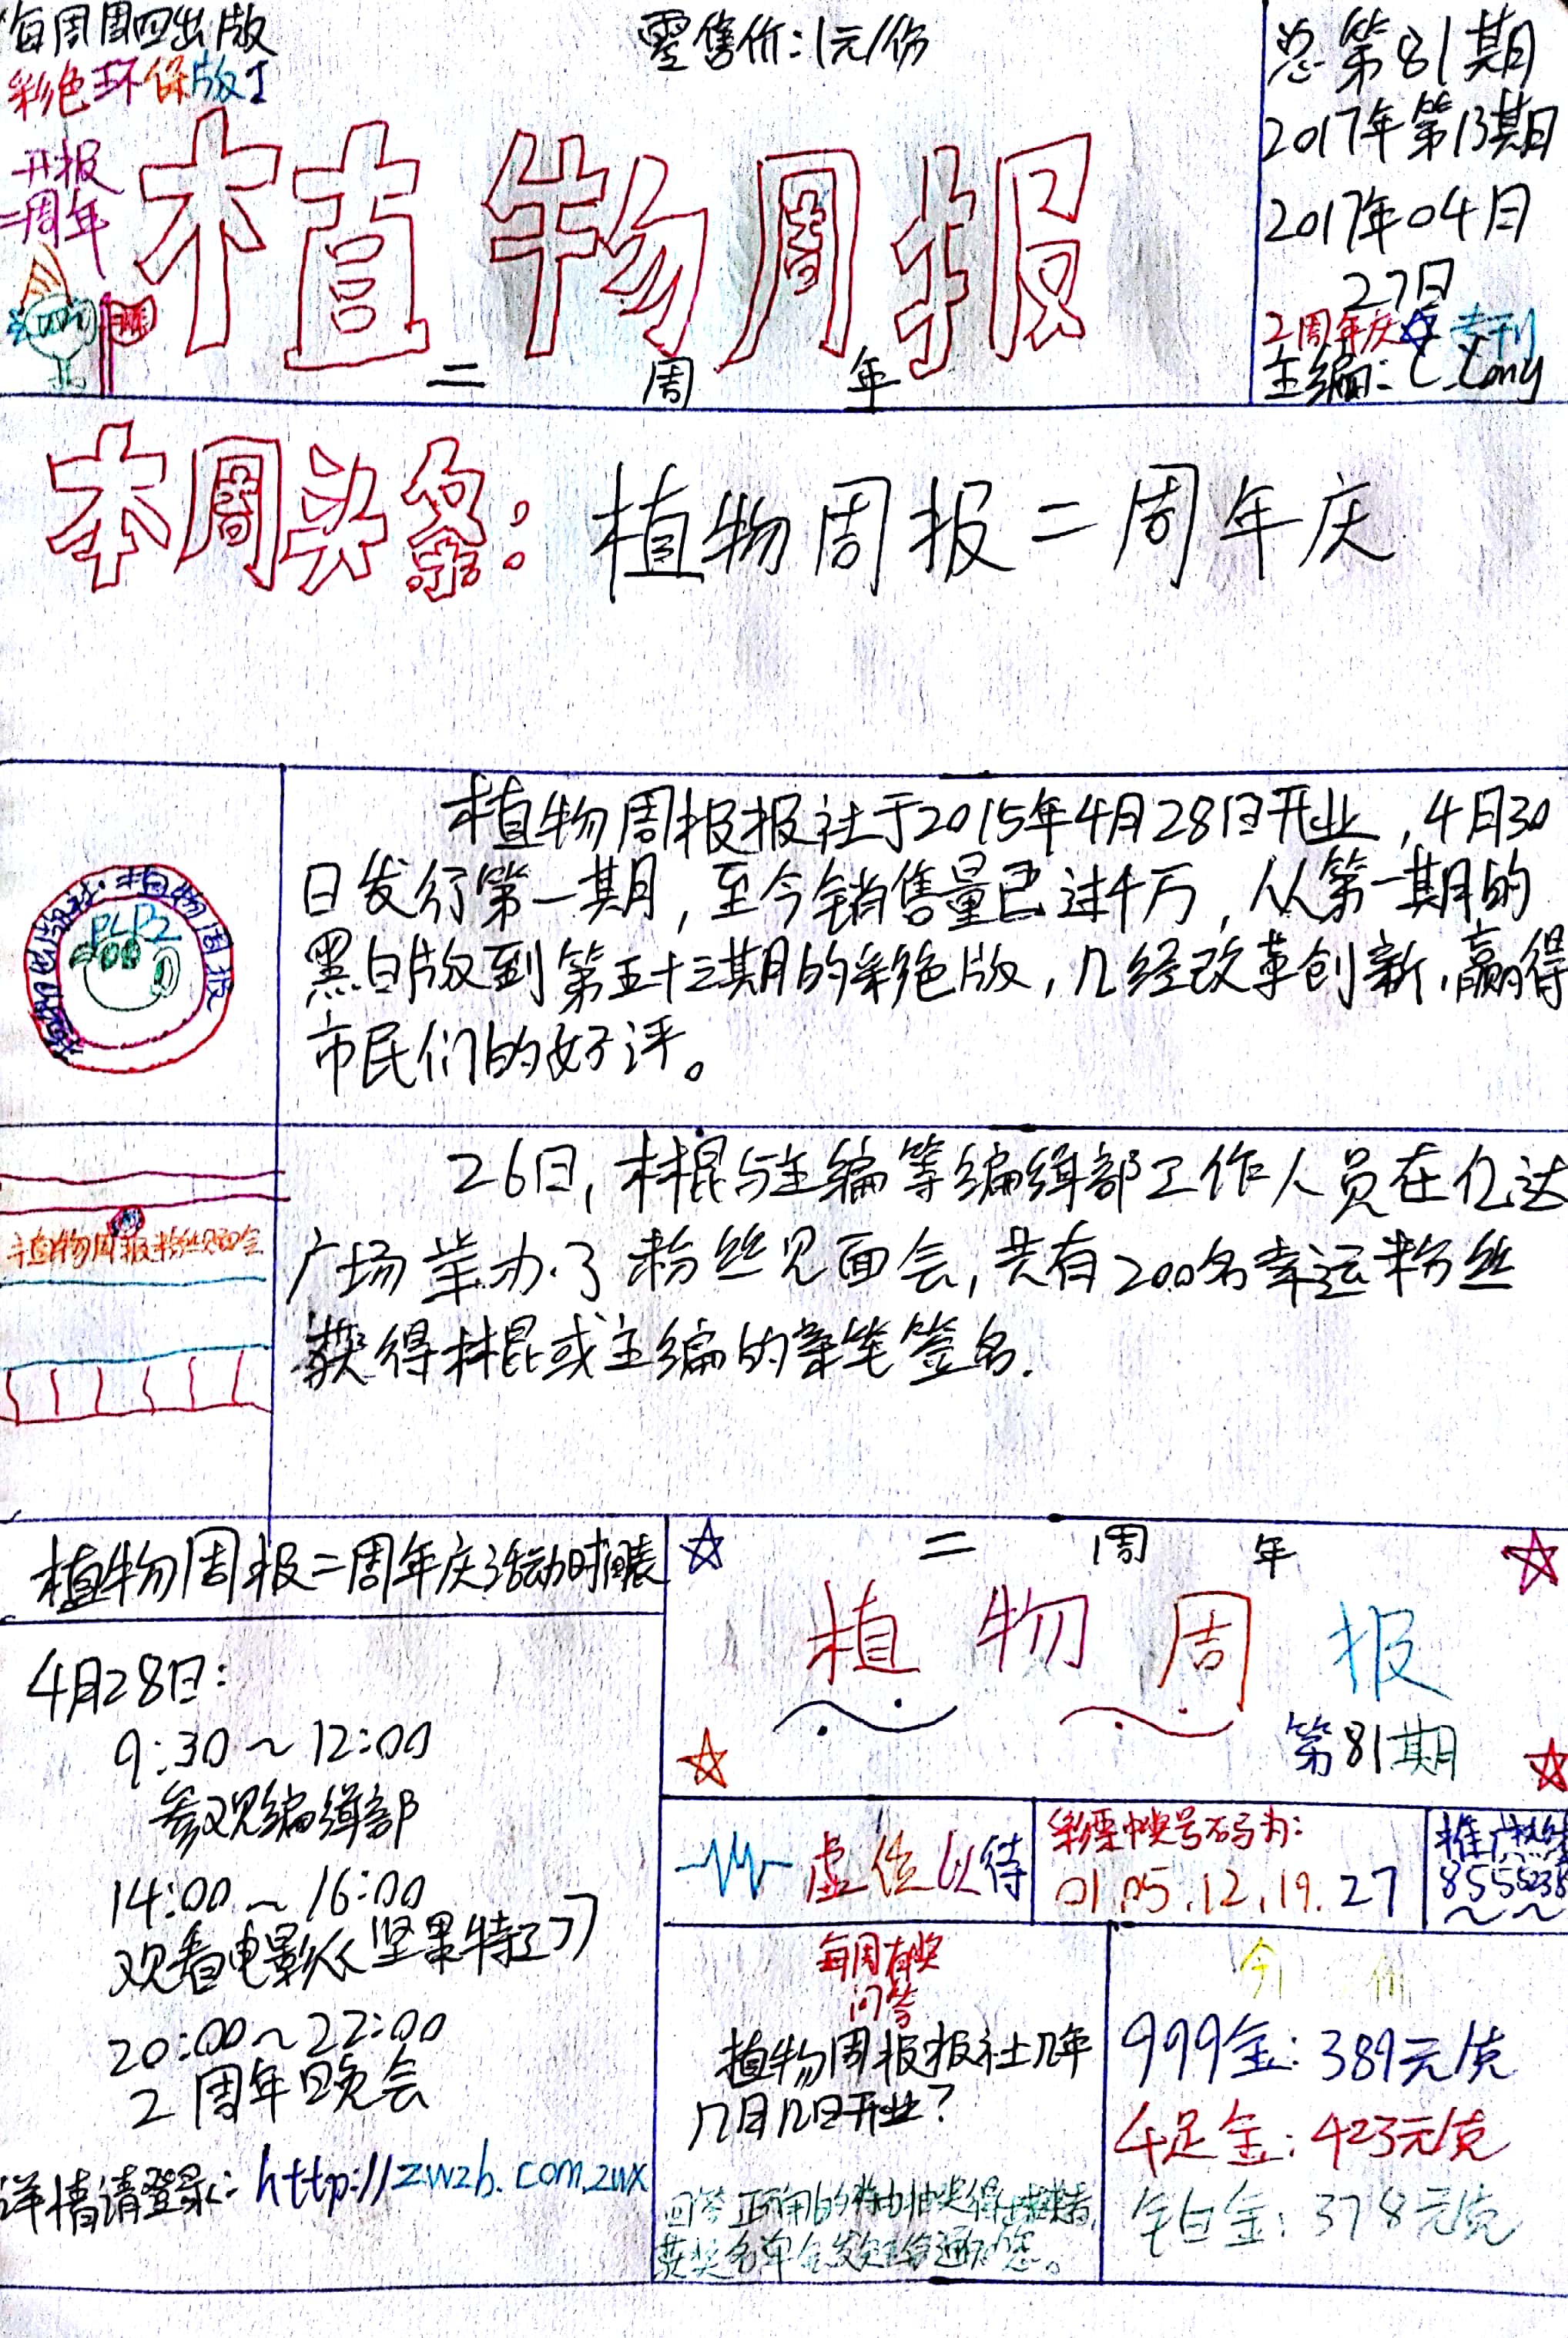 每周周四出版
彩色环保版
零售价:1元/份
总第81期
2017年第13期
2017年04月
27日
2周年庆 专刊
主编:C.Xony
开报
二周年
植物周报
二 周 年
本周头条:植物周报二周年庆
植物周报报社于2015年4月28日开业,4月30
日发行第一期,至今销售量已过千万,从第一期的
黑白版到第五十三期的彩色版,几经改革创新,赢得
市民们的好评。
植物周报
26日,木棍与主编等编缉部工作人员在亿达
广场举办了粉丝见面会,共有200名幸运粉丝
获得木棍或主编的亲笔签名.
植物周报粉丝见面会
植物周报二周年庆活动时间表
4月28日:
9:30~12:00
参观编缉部
14:00~16:00
观看电影《坚果特工》
20:00~22:00
2周年晚会
详情请登录:http://zwzb.com.zwx
二 周 年
植 物 周 报
第81期
虚位以待
彩票中奖号码为:
01.05.12.19.27
推广热线
每周有奖
问答
植物周报报社几年
几月几日开业?
回答正确的将抽奖得
获奖名单会发短信通知您。
今 价
999金:389元/克
千足金:423元/克
铂白金:378元/克